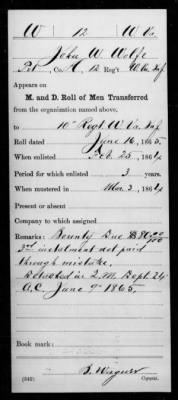 W 12 W. Va.
John W. Wolfe
Pvt, Co. H, 12 Reg't W. Va. Inf.
Appears on
M. and D. Roll of Men Transferred
from the organization named above.
to 10" Regt. W. Va. Inf
Roll dated June 16, 1865.
When enlisted Feb. 25, 1864
Period for which enlisted 3 years.
When mustered in Mar. 3, 1864
Present or absent
Company to which assigned
Remarks: Bounty Due $80 00/100
3rd instalment not paid
through mistake.
Detailed in Q.M. Dept. 24"
A.C. June 9" 1865.
Book mark:
(342)
Copyist.